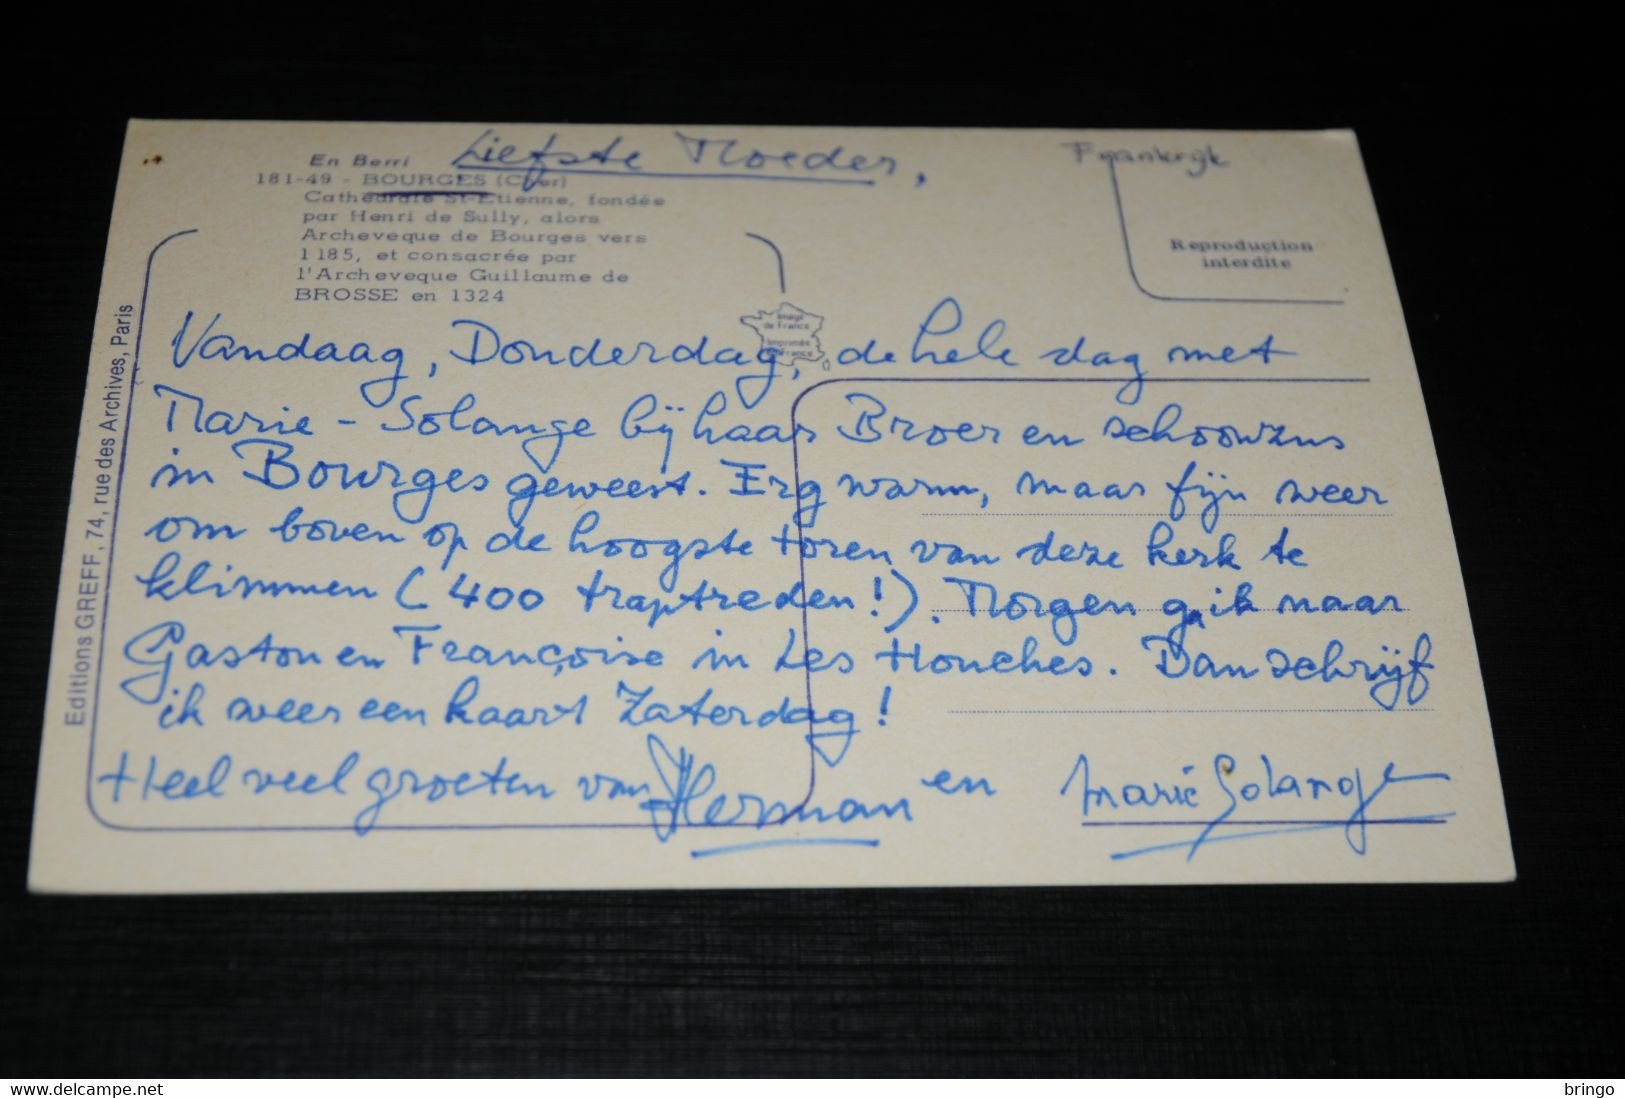 Liefste Moeder,
Frankrijk
En Berri
181-49 - BOURGES (Cher)
Cathédrale St-Etienne, fondée
par Henri de Sully, alors
Archeveque de Bourges vers
1185, et consacrée par
l'Archeveque Guillaume de
BROSSE en 1324
Reproduction
interdite
Image
de France
Imprimée
France
Editions GREFF, 74, rue des Archives, Paris
Vandaag, Donderdag, de hele dag met
Marie-Solange bij haar Broer en schoonzus
in Bourges geweest. Erg warm, maar fijn weer
om boven op de hoogste toren van deze kerk te
klimmen (400 traptreden!). Morgen ga ik naar
Gaston en Françoise in Les Houches. Dan schrijf
ik weer een kaart Zaterdag!
Heel veel groeten van Herman en Marie Solange
www.delcampe.net
bringo